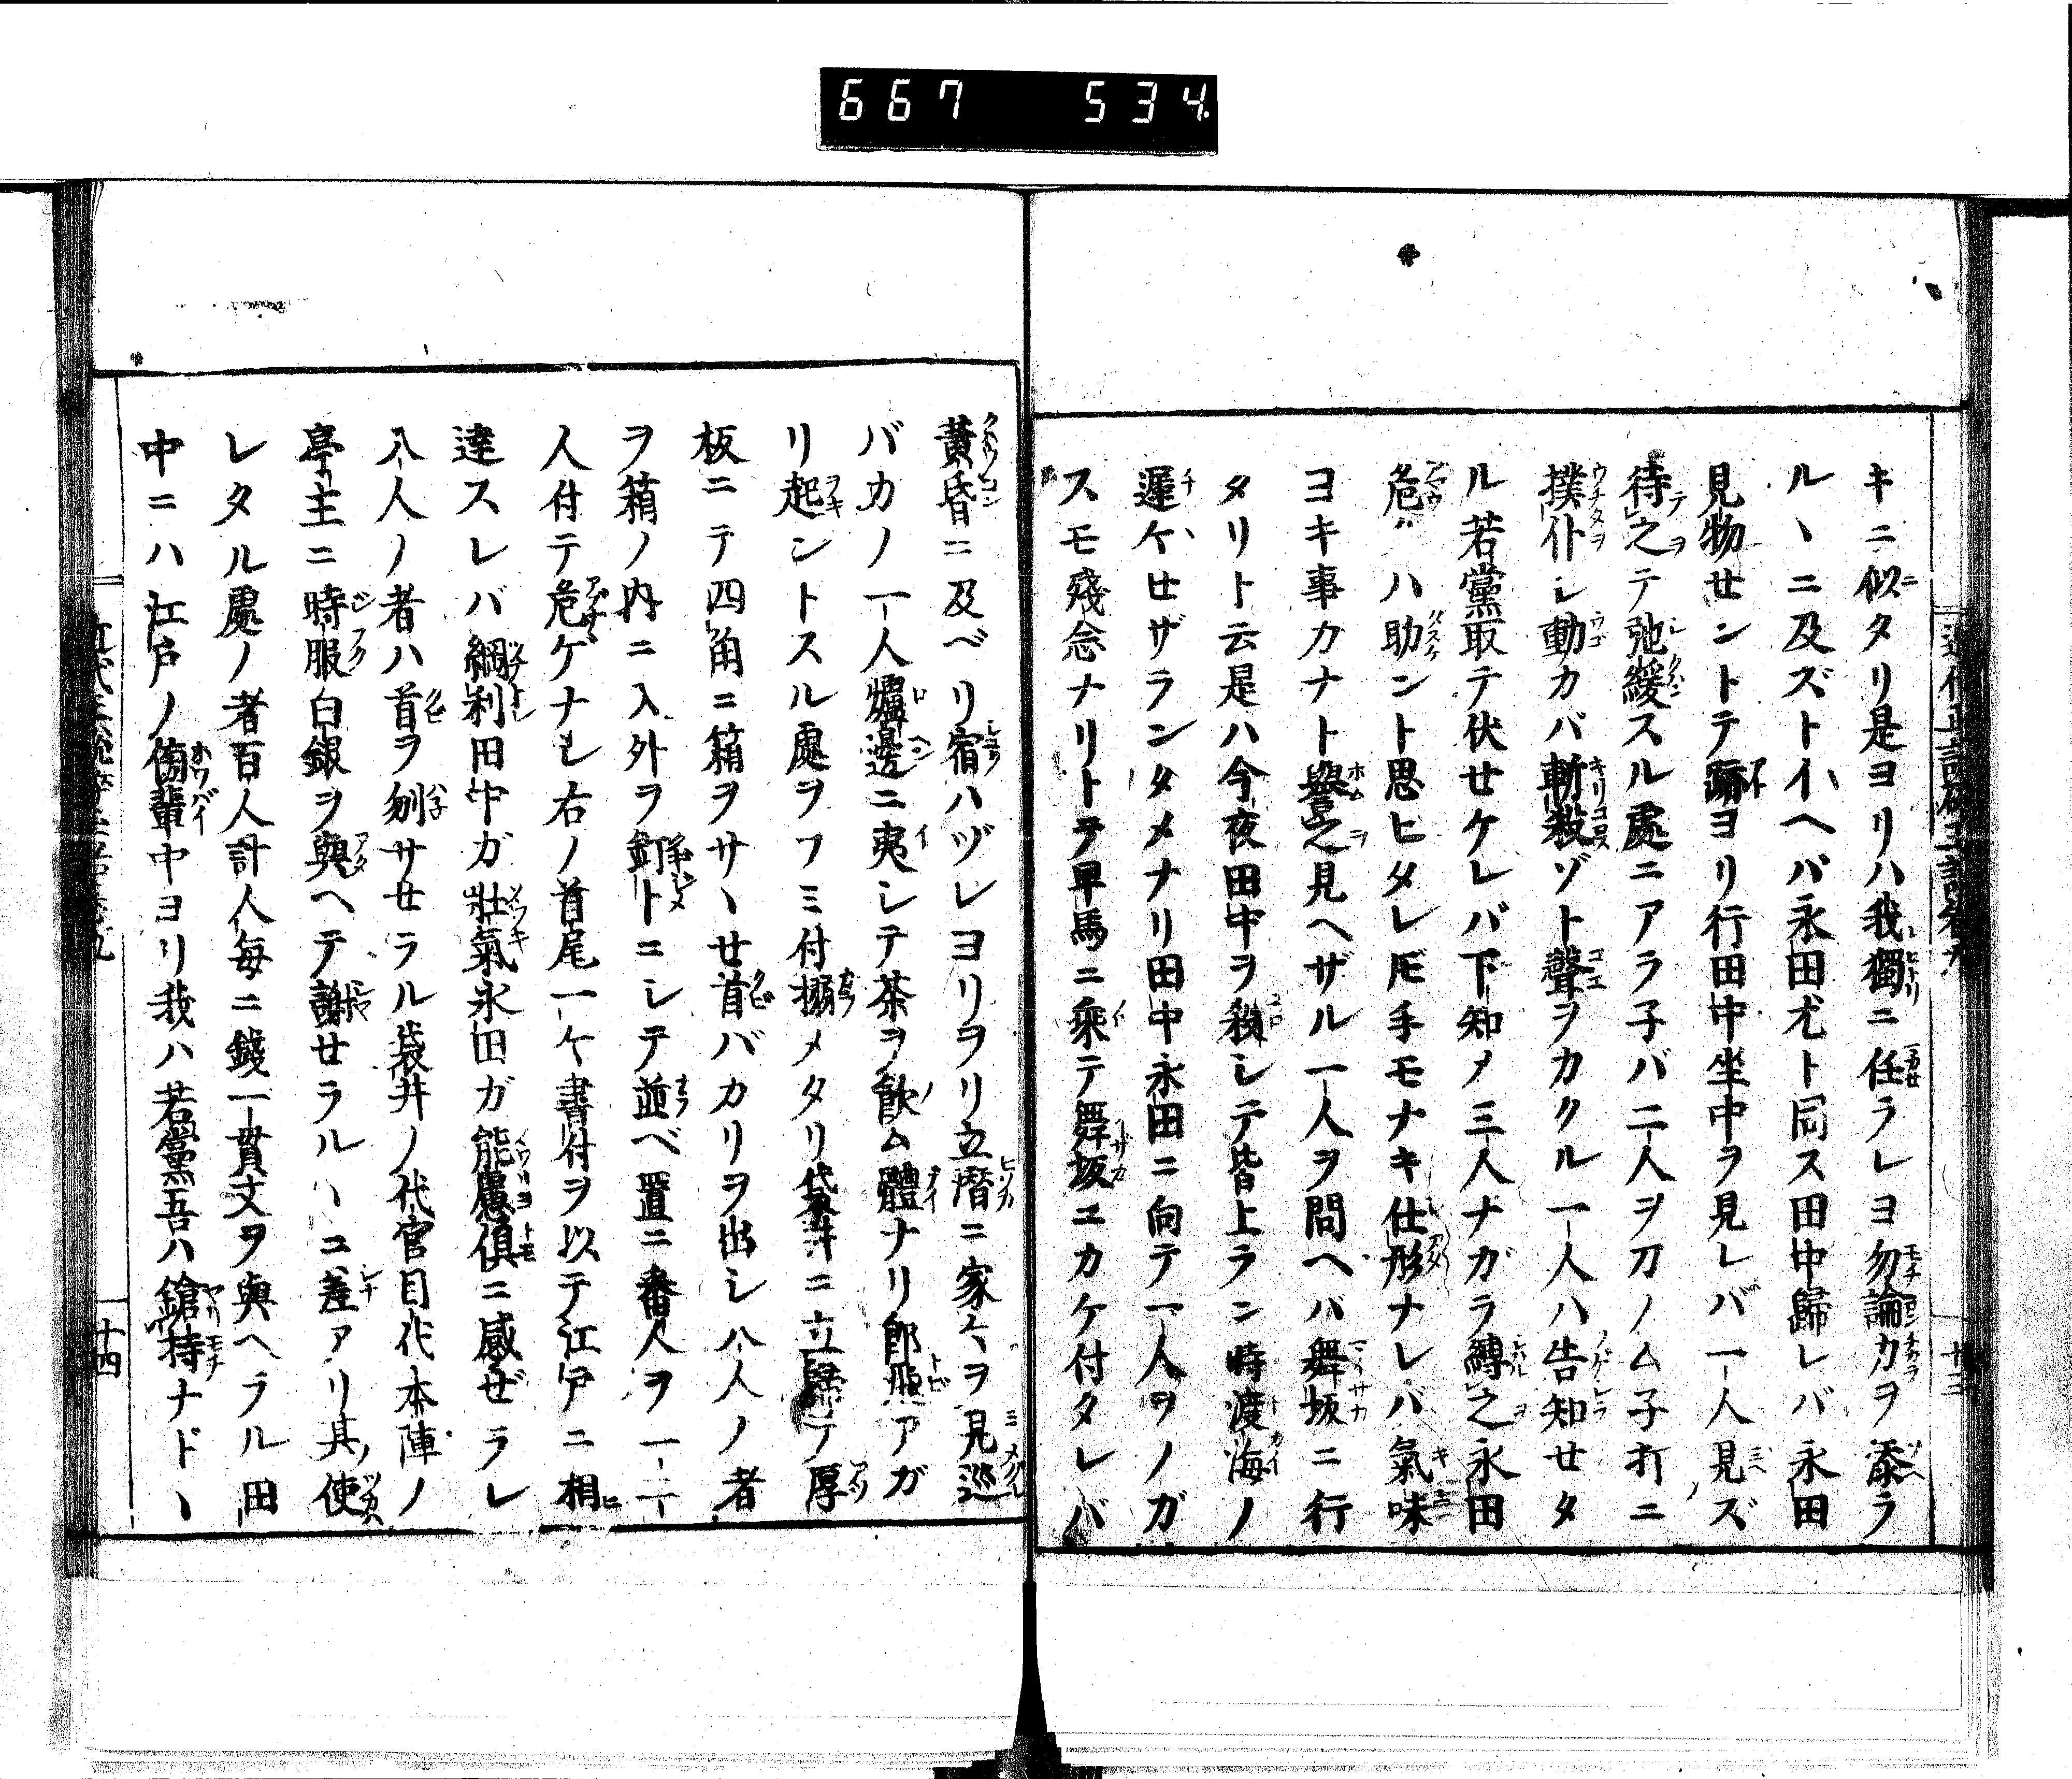 667 534
キニ似タリ是ヨリハ我獨ニ任ラレヨ勿論力ヲ添ラ
ルヽニ及ズトイヘバ永田尤ト同ス田中歸レバ永田
見物せントテ跡ヨリ行田中坐中ヲ見レバ一人見ズ
待之テ弛緩スル處ニアラ子バ二人ヲ刀ノム子打ニ
撲仆シ動カバ斬殺ゾト聲ヲカクル一人ハ告知せタ
ル若黨取テ伏せケレバ下知メ三人ナガラ縛之永田
危ハ助ント思ヒタレ𪜈手モナキ仕形ナレバ氣味
ヨキ事カナト譽之見ヘザル一人ヲ問ヘバ舞坂ニ行
タリト云是ハ今夜田中ヲ殺シテ皆上ラン時渡海ノ
遲ケせザランタメナリ田中永田ニ向テ一人ヲノガ
スモ殘念ナリトテ早馬ニ乘テ舞坂エカケ付タレバ
黄昏ニ及ベリ宿ハヅレヨリヲリ立潛ニ家々ヲ見巡
バカノ一人爐邊ニ夷シテ茶ヲ飲ム體ナリ郎飛アガ
リ起ントスル處ヲフミ付搦メタリ袋井ニ立歸テ厚
板ニテ四角ニ箱ヲサヽせ首バカリヲ出シ八人ノ者
ヲ箱ノ内ニ入外ヲ釘トニシテ並ベ置ニ番人ヲ一二
人付テ危ゲナレ右ノ首尾一ケ書付ヲ以テ江戸ニ相
達スレバ綱利田中ガ壯氣永田ガ能慮倶ニ感ぜラレ
八人ノ者ハ首ヲ刎サせラル袋井ノ代官目代本陣ノ
亭主ニ時服白銀ヲ與ヘテ謝せラルヽコ差アリ其使
レタル處ノ者百人計人毎ニ錢一貫文ヲ與ヘラル田
中ニハ江戸ノ傍輩中ヨリ我ハ若黨吾ハ鎗持ナドヽ
十四